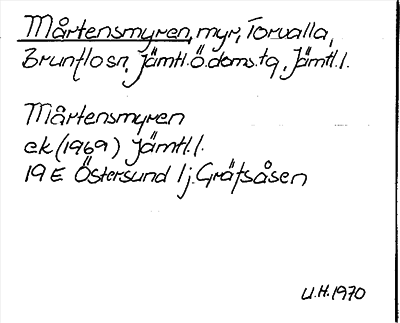 Mårtensmyren, myr, Torvalla,
Brunflo sn, Jämtl.Ö.doms.tg, Jämtl.l.
Mårtensmyren
ek (1969) Jämtl.l.
19E Östersund 1j Gräfsåsen
U.H. 1970